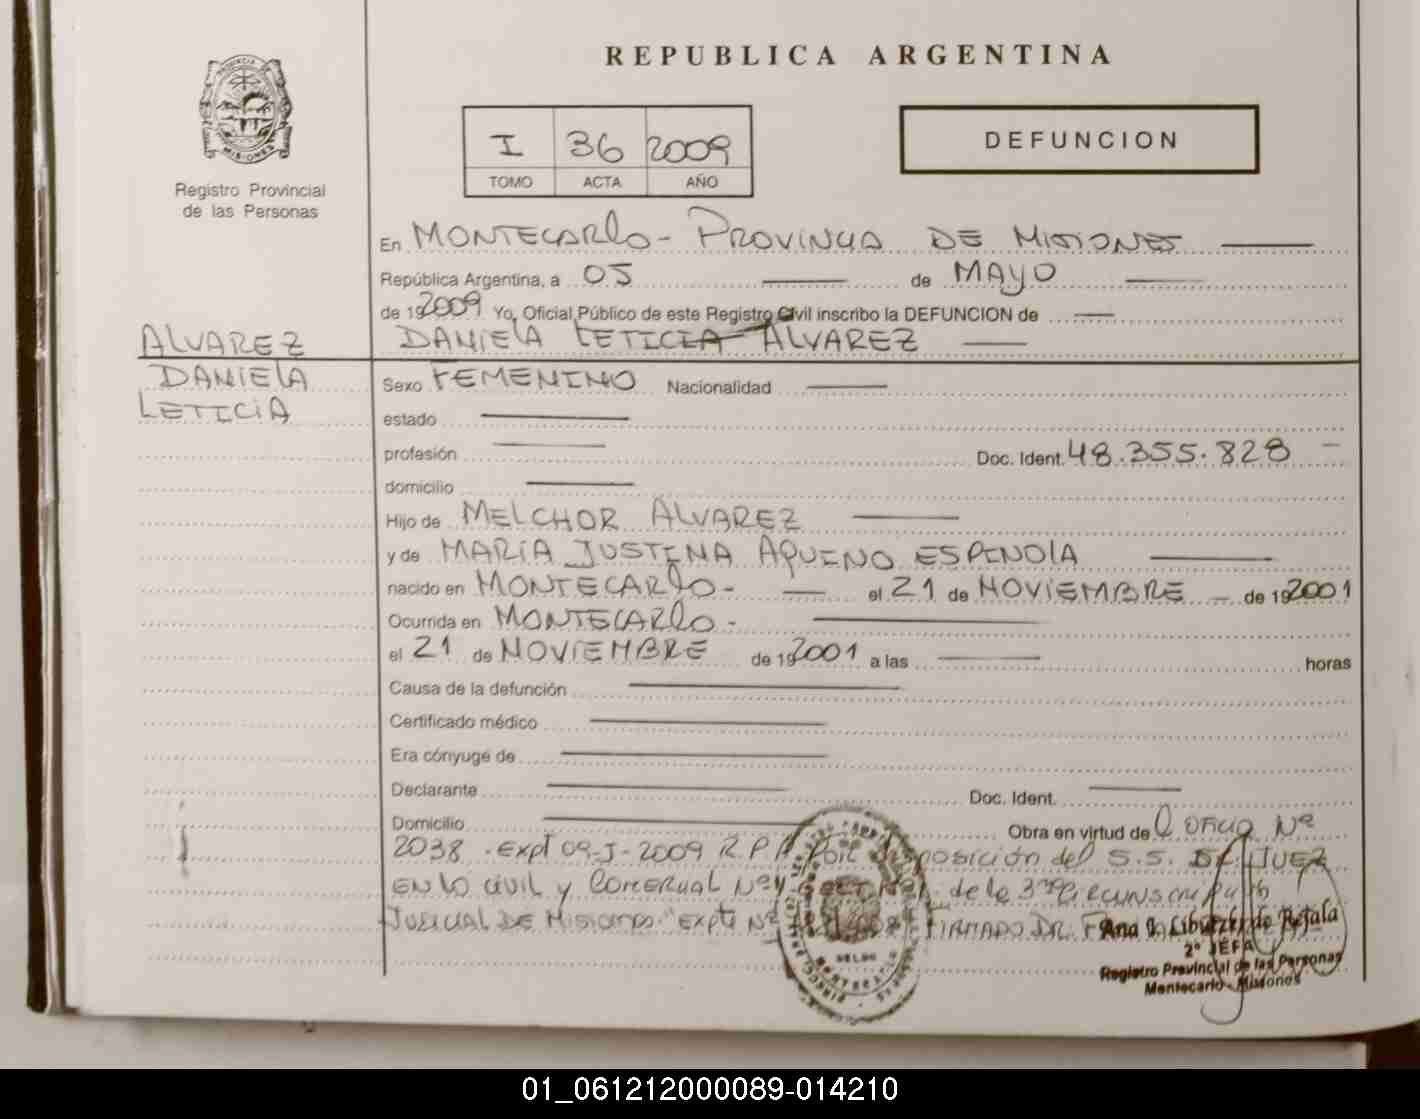 REPUBLICA ARGENTINA
PROVINCIA
MISIONES
Registro Provincial
de las Personas
I 36 2009
TOMO ACTA AÑO
DEFUNCION
En MONTECARlo - PROVINCIA DE MISIONES
República Argentina, a 05 de MAYO
de 192009 Yo, Oficial Público de este Registro Civil inscribo la DEFUNCION de
DANIELA LETICIA ALVAREZ
ALVAREZ
DANIELA
LETICIA
Sexo FEMENINO Nacionalidad
estado
profesión Doc. Ident. 48.355.828
domicilio
Hijo de MELCHOR ALVAREZ
y de MARIA JUSTINA AQUINO ESPINOLA
nacido en MONTECARlo - el 21 de NOVIEMBRE de 192001
Ocurrida en MONTECARlo -
el 21 de NOVIEMBRE de 192001 a las horas
Causa de la defunción
Certificado médico
Era cónyuge de
Declarante Doc. Ident.
Domicilio Obra en virtud de OFICIO Nº
2038 - EXPT 09-J-2009 R.P.P. POR disposición del S.S. JUEZ
EN lo civil y COMERCIAL Nº de la 3ra Circunscripción
JUDICIAL DE Misiones "EXPTE Nº FIRMADO DR.
Ana
2º JEFA
Registro Provincial de las Personas
Montecarlo - Misiones
01_061212000089-014210